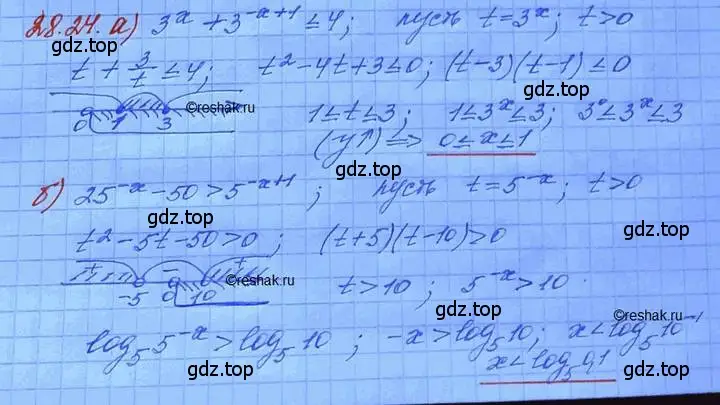 28.24. а) 3^x + 3^{-x+1} ≤ 4; пусть t = 3^x; t > 0
gdz.top gdz.top
t + 3/t ≤ 4; t² - 4t + 3 ≤ 0; (t-3)(t-1) ≤ 0
©reshak.ru
0 1 3 1 ≤ t ≤ 3; 1 ≤ 3^x ≤ 3; 3^0 ≤ 3^x ≤ 3
gdz.top (y↑) ⇒ 0 ≤ x ≤ 1 gdz.top
б) 25^{-x} - 50 > 5^{-x+1}; пусть t = 5^{-x}; t > 0
gdz.top gdz.top
t² - 5t - 50 > 0; (t+5)(t-10) > 0
+ - +
©reshak.ru
-5 0 10 t > 10; 5^{-x} > 10
gdz.top gdz.top
©reshak.ru
log_5 5^{-x} > log_5 10; -x > log_5 10; x < log_5 10^{-1}
gdz.top x < log_5 0,1
gdz.top